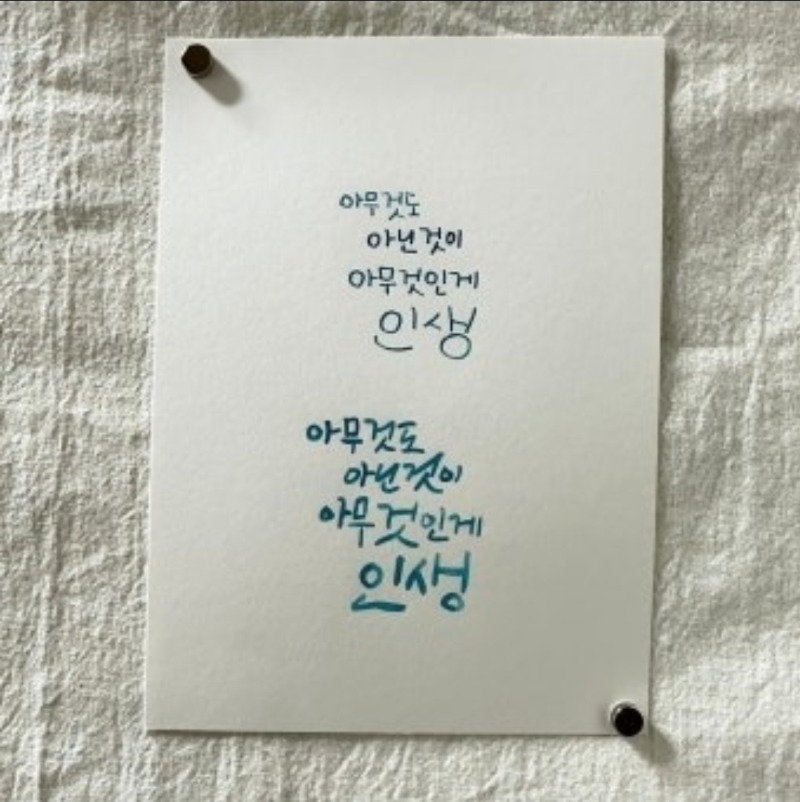 아무것도
아닌것이
아무것인게
인생
아무것도
아닌것이
아무것인게
인생